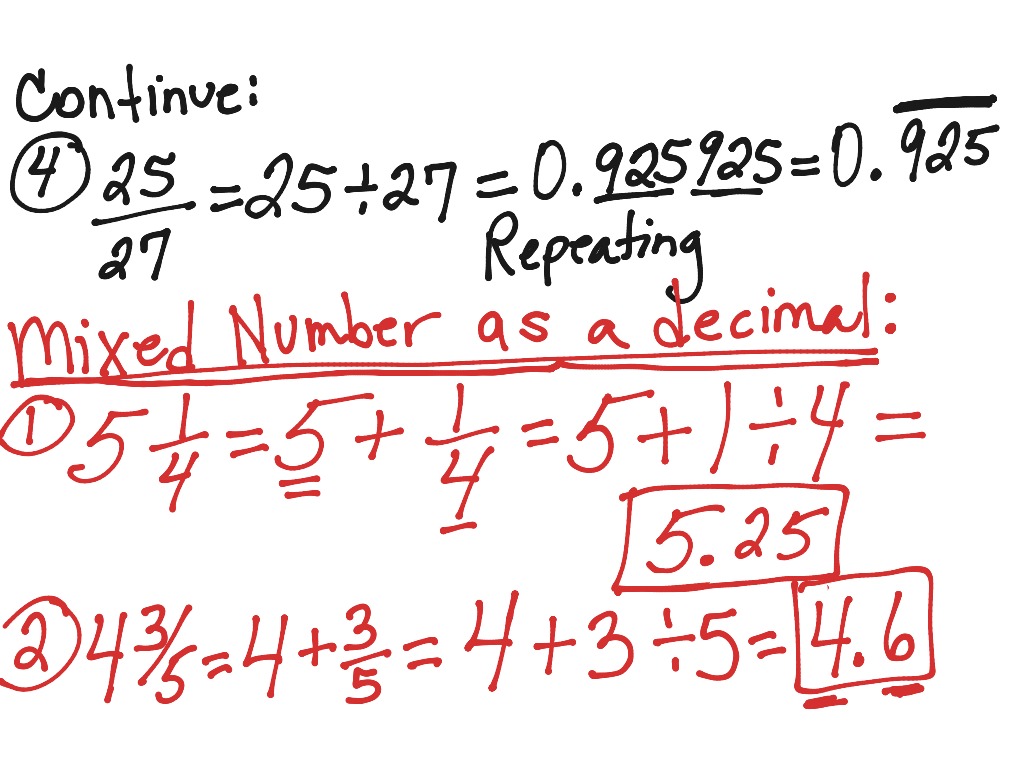 Continue:
④ 25/27 = 25 ÷ 27 = 0.925925 = 0.9̅2̅5̅
Repeating
Mixed Number as a decimal:
① 5 1/4 = 5 + 1/4 = 5 + 1 ÷ 4 =
5.25
② 4 3/5 = 4 + 3/5 = 4 + 3 ÷ 5 = 4.6